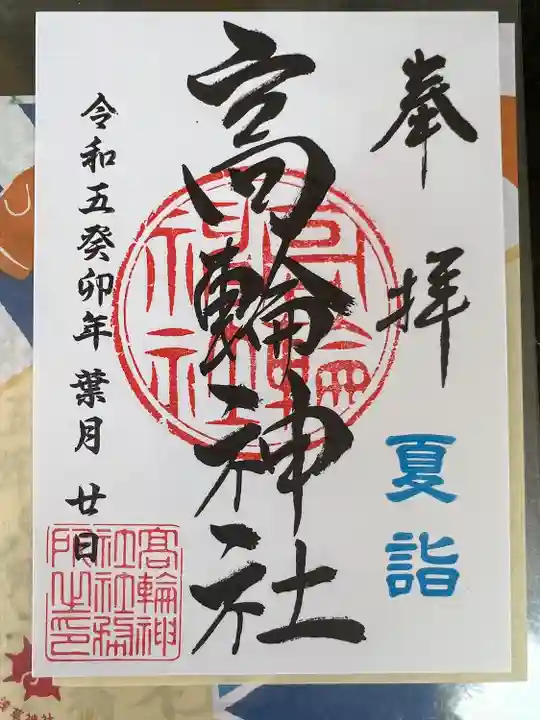 奉拝
夏詣
高輪神社
令和五癸卯年 葉月 廿日
高輪神
社社務
所之印